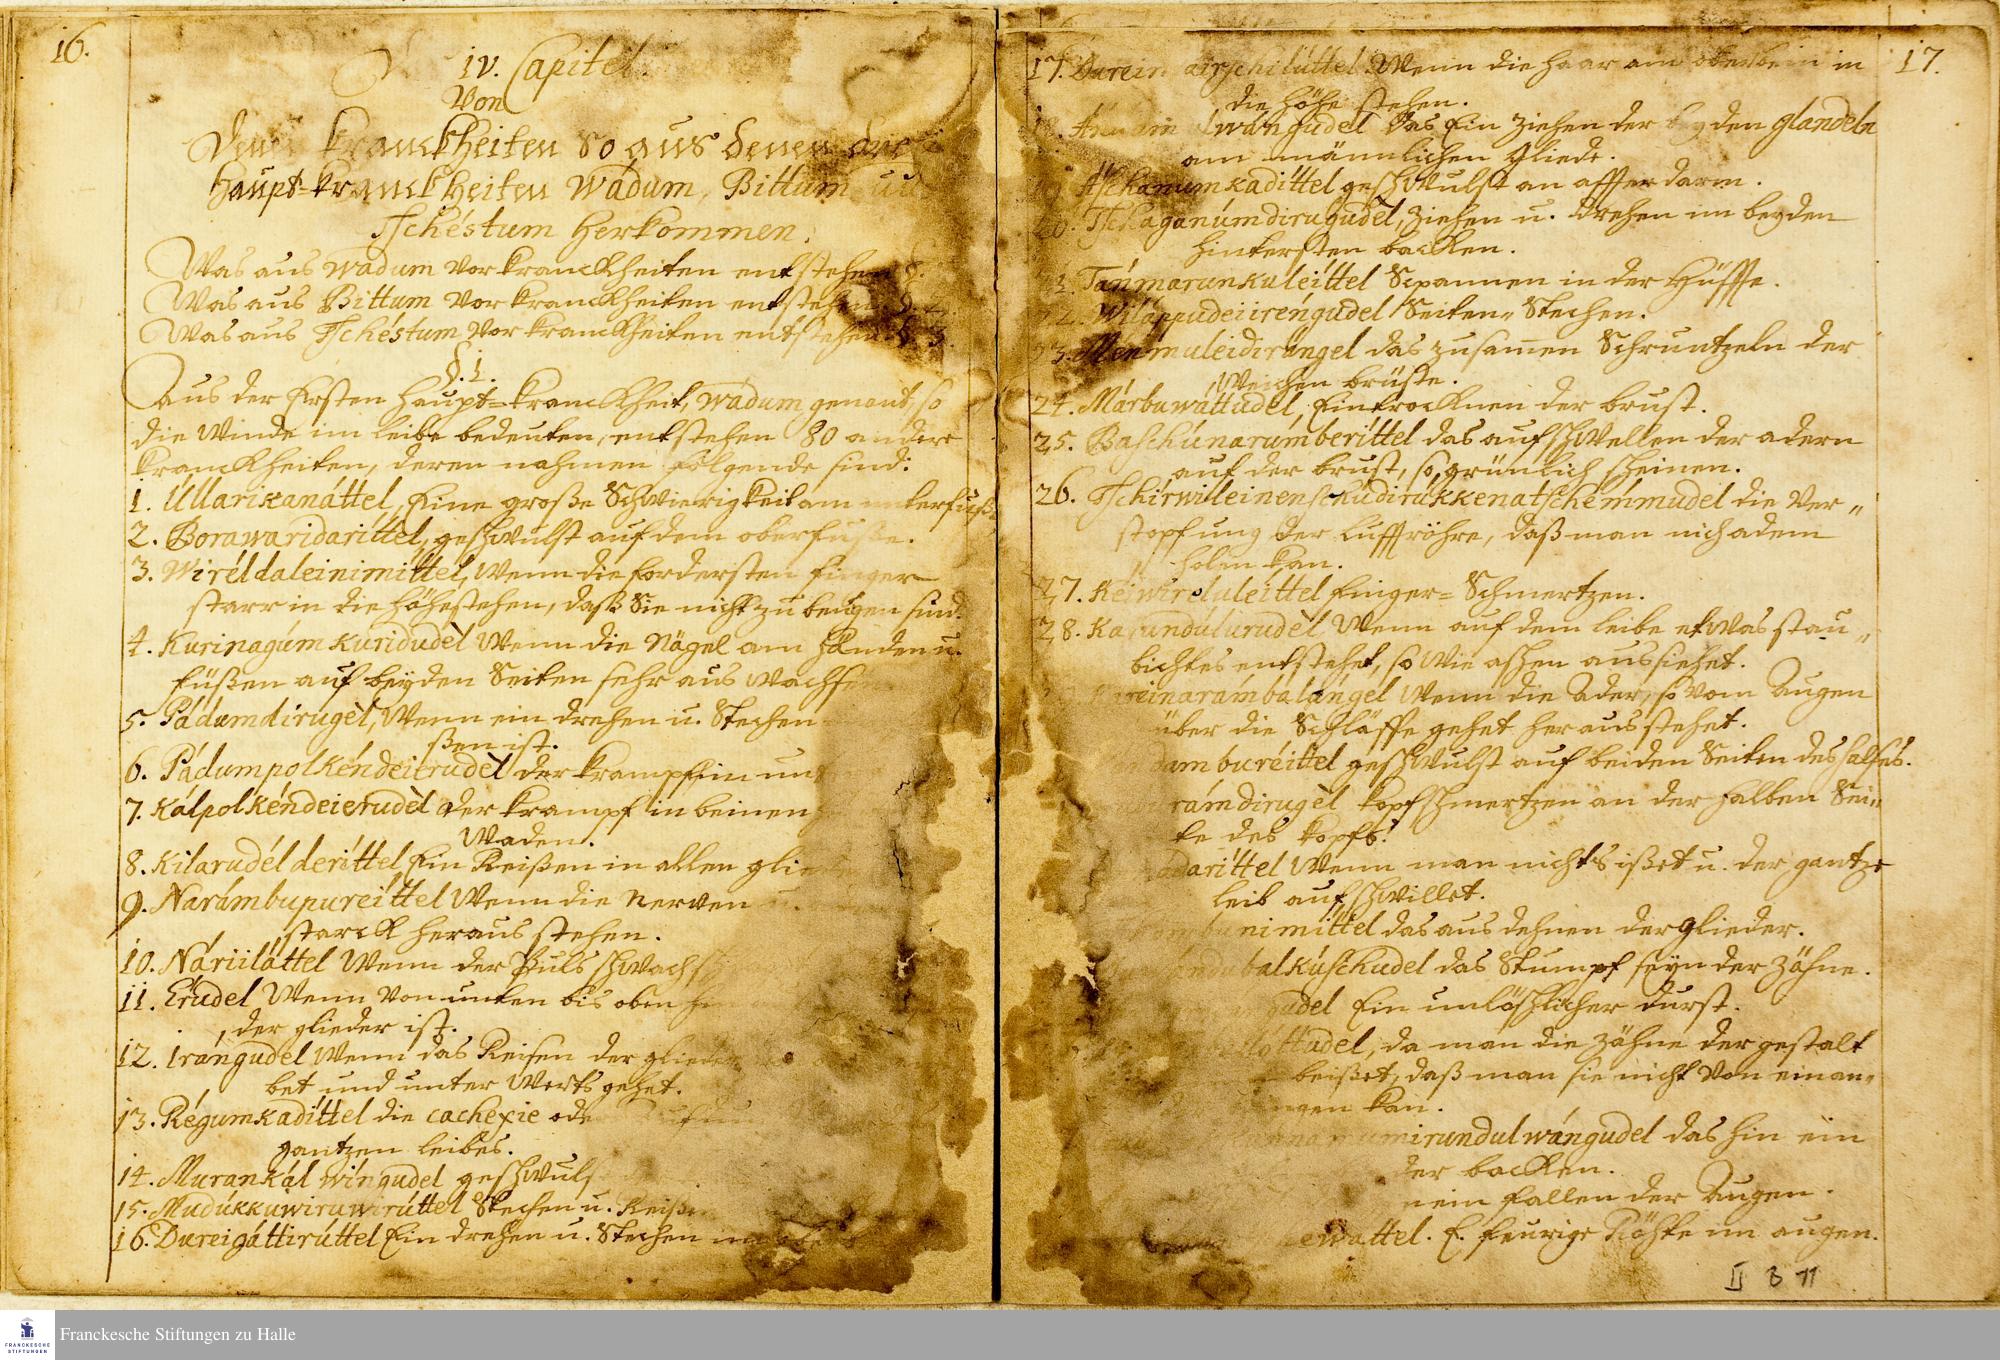 16.
IV. Capitel.
Von
Denen kranckheiten so aus denen drey
Haupt=kranckheiten Wádum, Bittum und
Tschéstum herkommen.
Was aus Wádum vor kranckheiten entstehen §.
Was aus Bittum vor kranckheiten entstehen §. 2.
Was aus Tschéstum vor kranckheiten entstehen §. 3.
§. 1.
Aus der Ersten Haupt=kranckheit, Wádum genant, so
die Winde im leibe bedeuten, entstehen 80 andere
kranckheiten, deren nahmen folgende sind:
1. Úllarikanáttel, Eine große Schwierigkeit am unterfuß
2. Borawaridaríttel, geschwulst auf dem oberfuße.
3. Wiréldaleinimíttel, Wenn die fordersten finger
starr in die höhe stehen, daß Sie nicht zu beugen sind.
4. Kurinagúmkuridudèl Wenn die Nägel am händen u.
füßen auf beyden Seiten sehr aus wachsen
5. Pádumdirugèl, Wenn ein drehen u. Stechen
ßen ist.
6. Pádumpolkéndeierudèl der krampff im unt
7. Kálpolkéndeierudèl der krampf in beinen
Waden.
8. Kilarudél deríttel Ein Reißen in allen glie
9. Narámbupureíttel Wenn die Nerven u.
starck heraus stehen.
10. Náriiláttel Wenn der Puls schwach
11. Erudel Wenn von unten bis oben
der glieder ist.
12. Irángudel Wenn das Reisen der glieder
bet und unter Werts gehet.
13. Régumkadíttel die cachexie ode
gantzen leibes.
14. Murankál wíngudel geschwuls
15. Mudúkkuwiruwirúttel Stechen u. Reiß
16. Dureigáttirúttel Ein drehen u. Stechen im
17.
17. Durein airschilúttel Wenn die haar am oberbein in
die höhe stehen.
wángudel Das Ein ziehen der beyden glandeln
am männlichen gliede.
Aschanumkadíttel geschwulst an affterdarm.
20. Tschaganúmdirugudèl, ziehen u. drehen im beyden
hintersten backen.
21. Tánmarunkuleíttel Spannen in der Hüffte.
22. Wiláppudeiiréngudel Seiten=Stechen.
23. Menmuleidirángel das zusamen Schruntzeln der
Weichen brüste.
24. Márbuwáttudel, Eintrocknen der brust.
25. Baschúnarúmberíttel das aufschwellen der adern
auf der brust, so grünlich scheinen.
26. Tschírwilleinenschudirúkkenatschémmudel die Ver=
stopfung der Luffröhre, daß man nich adem
holen kan.
27. Keiwireluleíttel Finger=Schmertzen.
28. Karundúlurudèl, Wenn auf dem leibe etwas stau=
bichtes entstehet, so wie aschen aussiehet.
reinarámbalángel Wenn die Ader, so vom Augen
über die Schläffe gehet heraus stehet.
dam bureíttel geschwulst auf beiden Seiten des halses.
rámdirugèl kopfschmertzen an der halben Sei=
te des kopfs.
adaríttel Wenn man nichts ißet u. der gantze
leib aufschwillet.
bunimíttel das aus dehnen der glieder.
ndubalkúschudel das Stumpf seyn der Zähne.
gudel Ein unlöschlicher durst.
óttudel, da man die Zähne der gestalt
beißet, daß man sie nicht von einan=
ngen kan.
kánnamumirundulwángudel das hin ein
der backen.
nein fallen der Augen.
ewattel. E. feurige Röhte im augen.
II B 11
Franckesche Stiftungen zu Halle
FRANCKESCHE
STIFTUNGEN